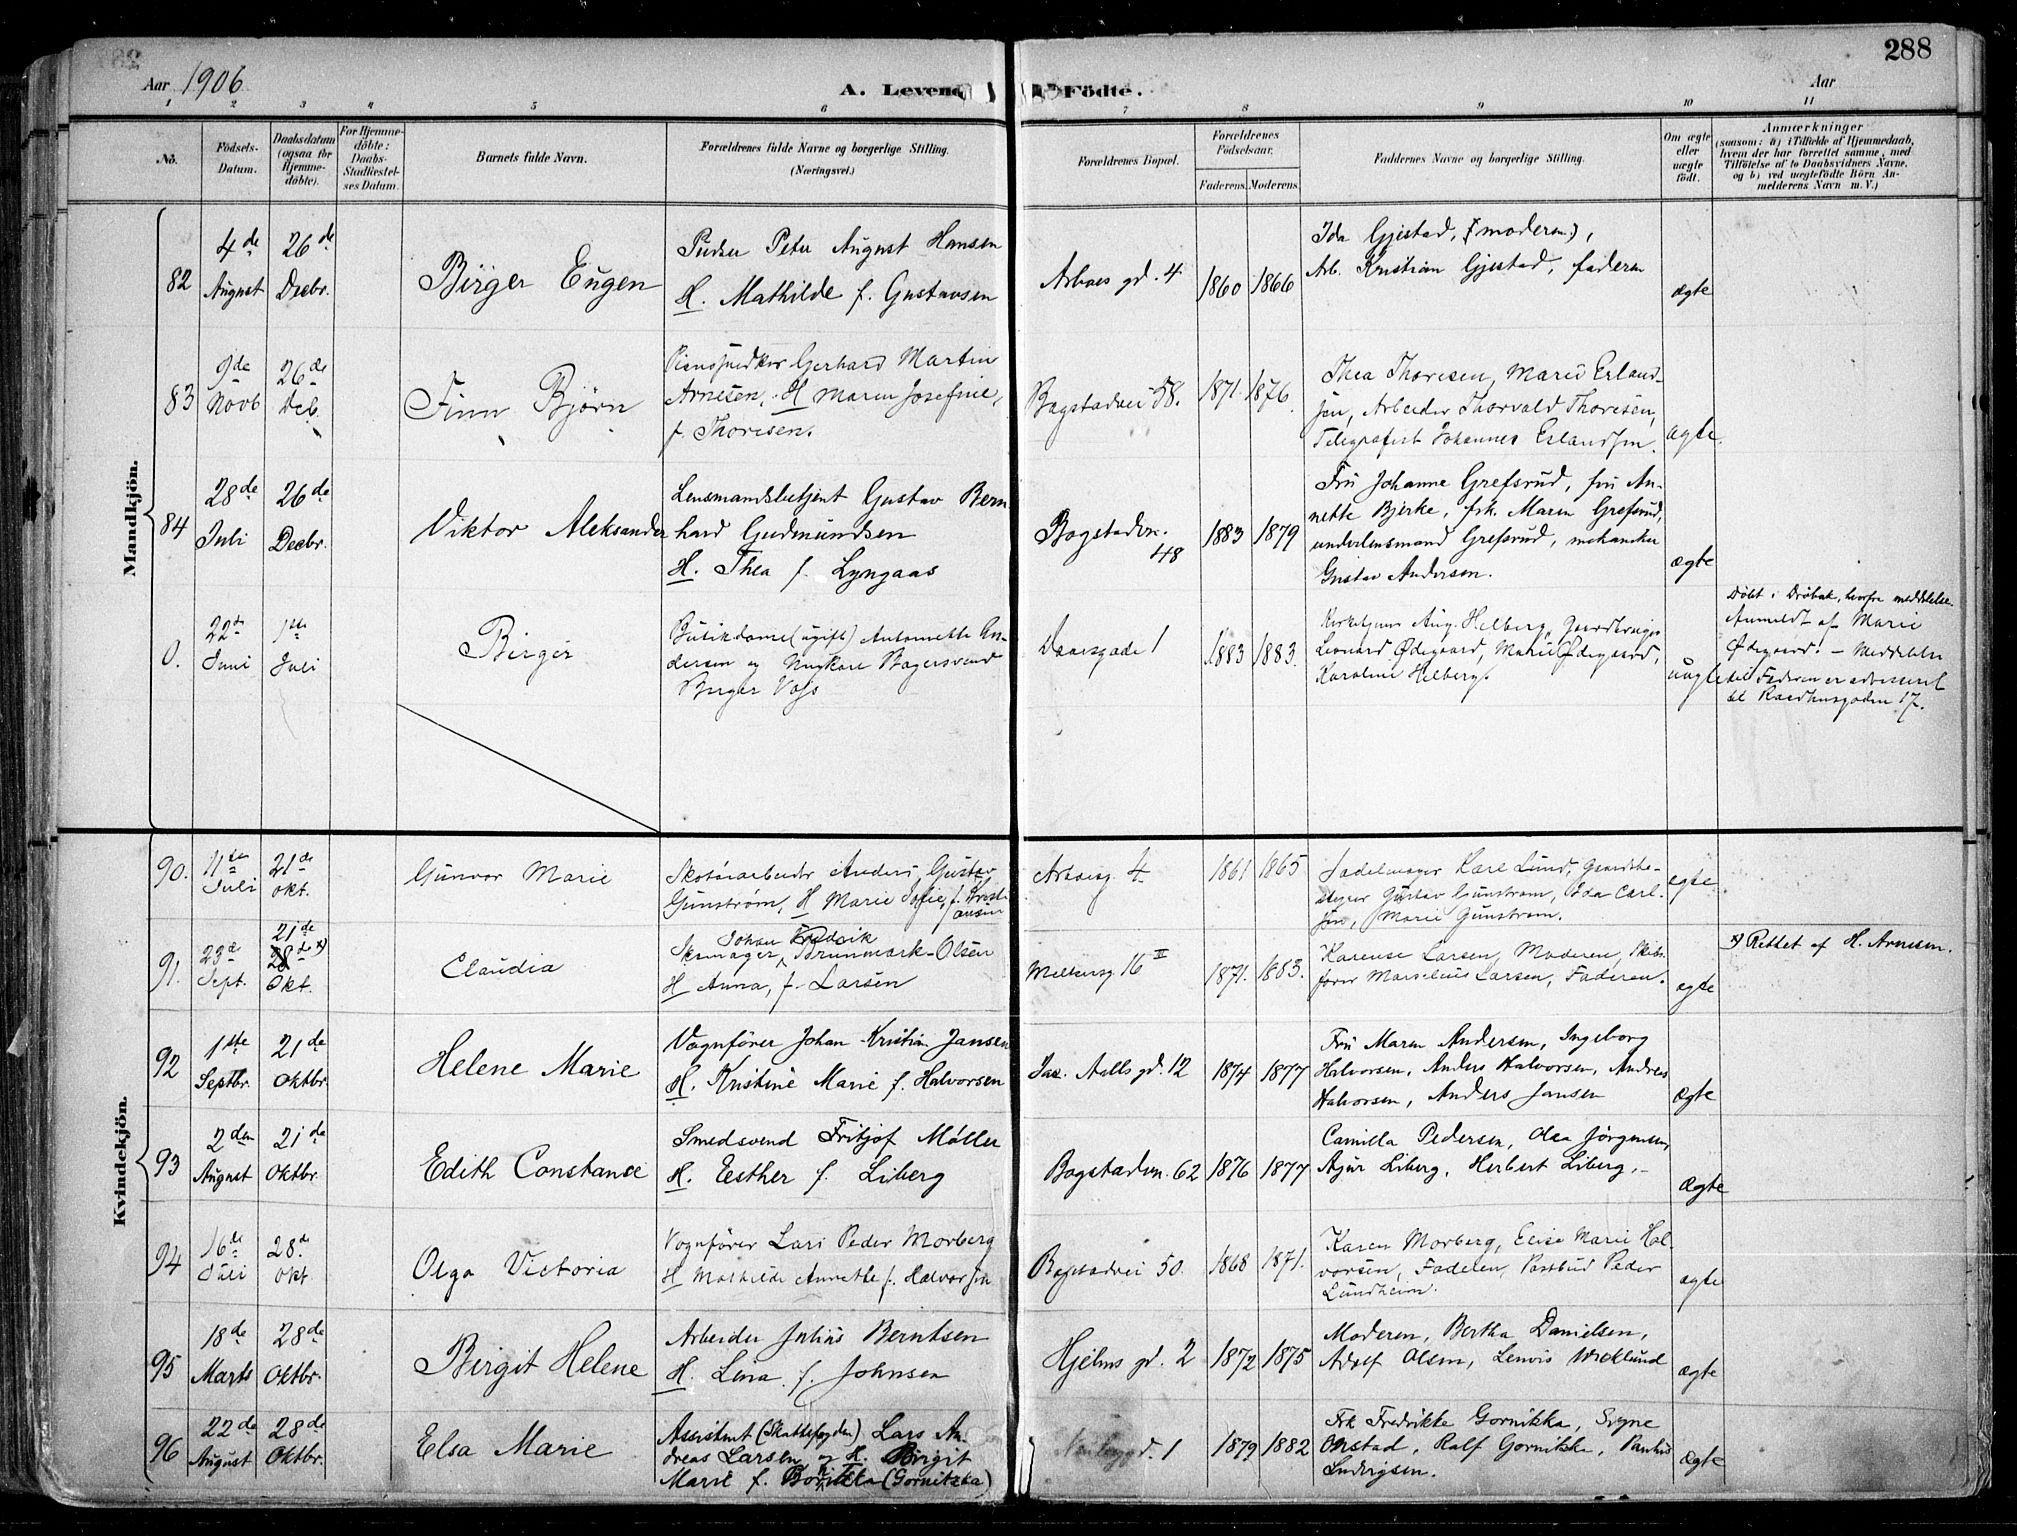 288
Aar 1906
A. Levende Födte.
Aar
1 2 3 4 5 6 7 8 9 10 11
No.
Födsels-
Datum.
Daabsdatum
(ogsaa for
Hjemme-
döbte).
For Hjemme-
döbte:
Daabs-
Stadfæstel-
ses Datum.
Barnets fulde Navn.
Forældrenes fulde Navne og borgerlige Stilling.
(Næringsvei.)
Forældrenes Bopæl.
Forældrenes
Födselsaar.
Faderens. Moderens.
Faddernes Navne og borgerlige Stilling.
Om ægte
eller
uægte
födt.
Anmærkninger
(saasom: a) i Tilfælde af Hjemmedaab,
hvem der har forrettet samme, med
Tilföielse af to Daabsvidners Navne,
og b) ved uægtefödte Börn An-
melderens Navn m. V.)
Mandkjön.
82
4de
August
26de
Decbr.
Birger Eugen
Peter August Hansen
H. Mathilde f. Gustavsen
Arboes gd. 4
1860 1866
Ida Gjestad, (moderen),
Arb. Kristian Gjestad, faderen
ægte
83
9de
Novb
26de
Deb.
Finn Björn
Gerhard Martin
Arnesen, H Maren Josefine,
f. Thoresen.
Bogstadvei 58.
1871. 1876.
Thea Thoresen, Marie Erland-
sen, Arbeider Thorvald Thoresen,
Telegrafist Johannes Erlandsen.
ægte.
84
28de
Juli
26de
Decbr.
Viktor Aleksander
Lensmandsbetjent Gustav Bern
hard Gudmundsen
H. Thea f. Lyngaas
Bogstadvn.
48
1883 1879
Fru Johanne Grefsrud, fru An-
nette Bjerke, frk. Maren Grefsrud,
underlensmand Grefsrud, mekaniker
Gustav Andersen.
ægte
0.
22de
Juni
1ste
Juli
Birger
Butikdame (ugift) Antonette An-
dersen og Ungkarl Bagersvend
Birger Voss
Daasgade 1
1883 1883.
Aug. Helberg,
Leonard Ødegaard, Marie Ødegaard,
Karoline Helberg.
uægte
Döbt i Dröbak, herfra meddelelse.
Anmeldt af Marie
Ødegaard. – Meddelelse
til Faderen er adresseret
til Raadhusgaden 17.
Kvindekjön.
90.
11te
Juli
21de
Okt.
Gunvor Marie
Skotöiarbeider Anders Gustav
Gunström, H Marie Sofie, f. Kristi
ansen
Arboesg 4
1861 1865
Sadelmager Karl Lund, Gaardbe-
styrer Gustav Gunstrøm, Ida Carl-
sen, Marie Gunstrøm.
ægte
91.
23de
Sept.
21de
28de x)
Okt.
Claudia
Johan Fredrik
Skomager, Brunmark-Olsen
H Anna, f. Larsen
Meltzersg 16 II
1871. 1883.
Karense Larsen, Moderen, Skibs
fører Marselius Larsen, Faderen.
ægte
x) Rettet af H. Arnesen.
92
1ste
Septbr.
21de
Oktbr.
Helene Marie
Vognfører Johan Kristian Jansen
H. Kristine Marie f. Halvorsen
Jac. Aalls gd. 12
1874 1877
Fru Maren Andersen, Ingeborg
Halvorsen, Anders Halvorsen, Andreas
Halvorsen, Anders Jansen
ægte
93
2den
August
21de
Oktbr.
Edith Constance
Smedsvend Fritjof Møller
H. Eesther f. Liberg
Bogstadvn. 62
1876 1877
Camilla Pedersen, Olea Jörgensen,
Liberg, Herbert Liberg.
ægte
94
16de
Juli
28de
Okt.
Olga Victoria
Vognfører Lars Peder Morberg
H Mathilde Annette f. Halvorsen
Bogstadvei 50.
1868 1871.
Karen Morberg, Elise Marie Hal-
vorsen, Faderen, Postbud Peder
Lundheim.
ægte
95
18de
Marts
28de
Oktbr.
Birgit Helene
Arbeider Julius Berntsen
H. Lina f. Johnsen
Hjelms gd. 2
1872 1875
Moderen, Bertha Danielsen,
Adolf Olsen, Wicklund
ægte
96
22de
August
28de
Oktbr.
Elsa Marie
Assistent (Skattefogden) Lars An-
dreas Larsen og H. Birgit
Marie f. (Gornitzka)
1
1879 1882
Frk Fredrikke Gornitzka, Signe
Onstad, Ralf Gornitzka,
Ludvigsen.
ægte